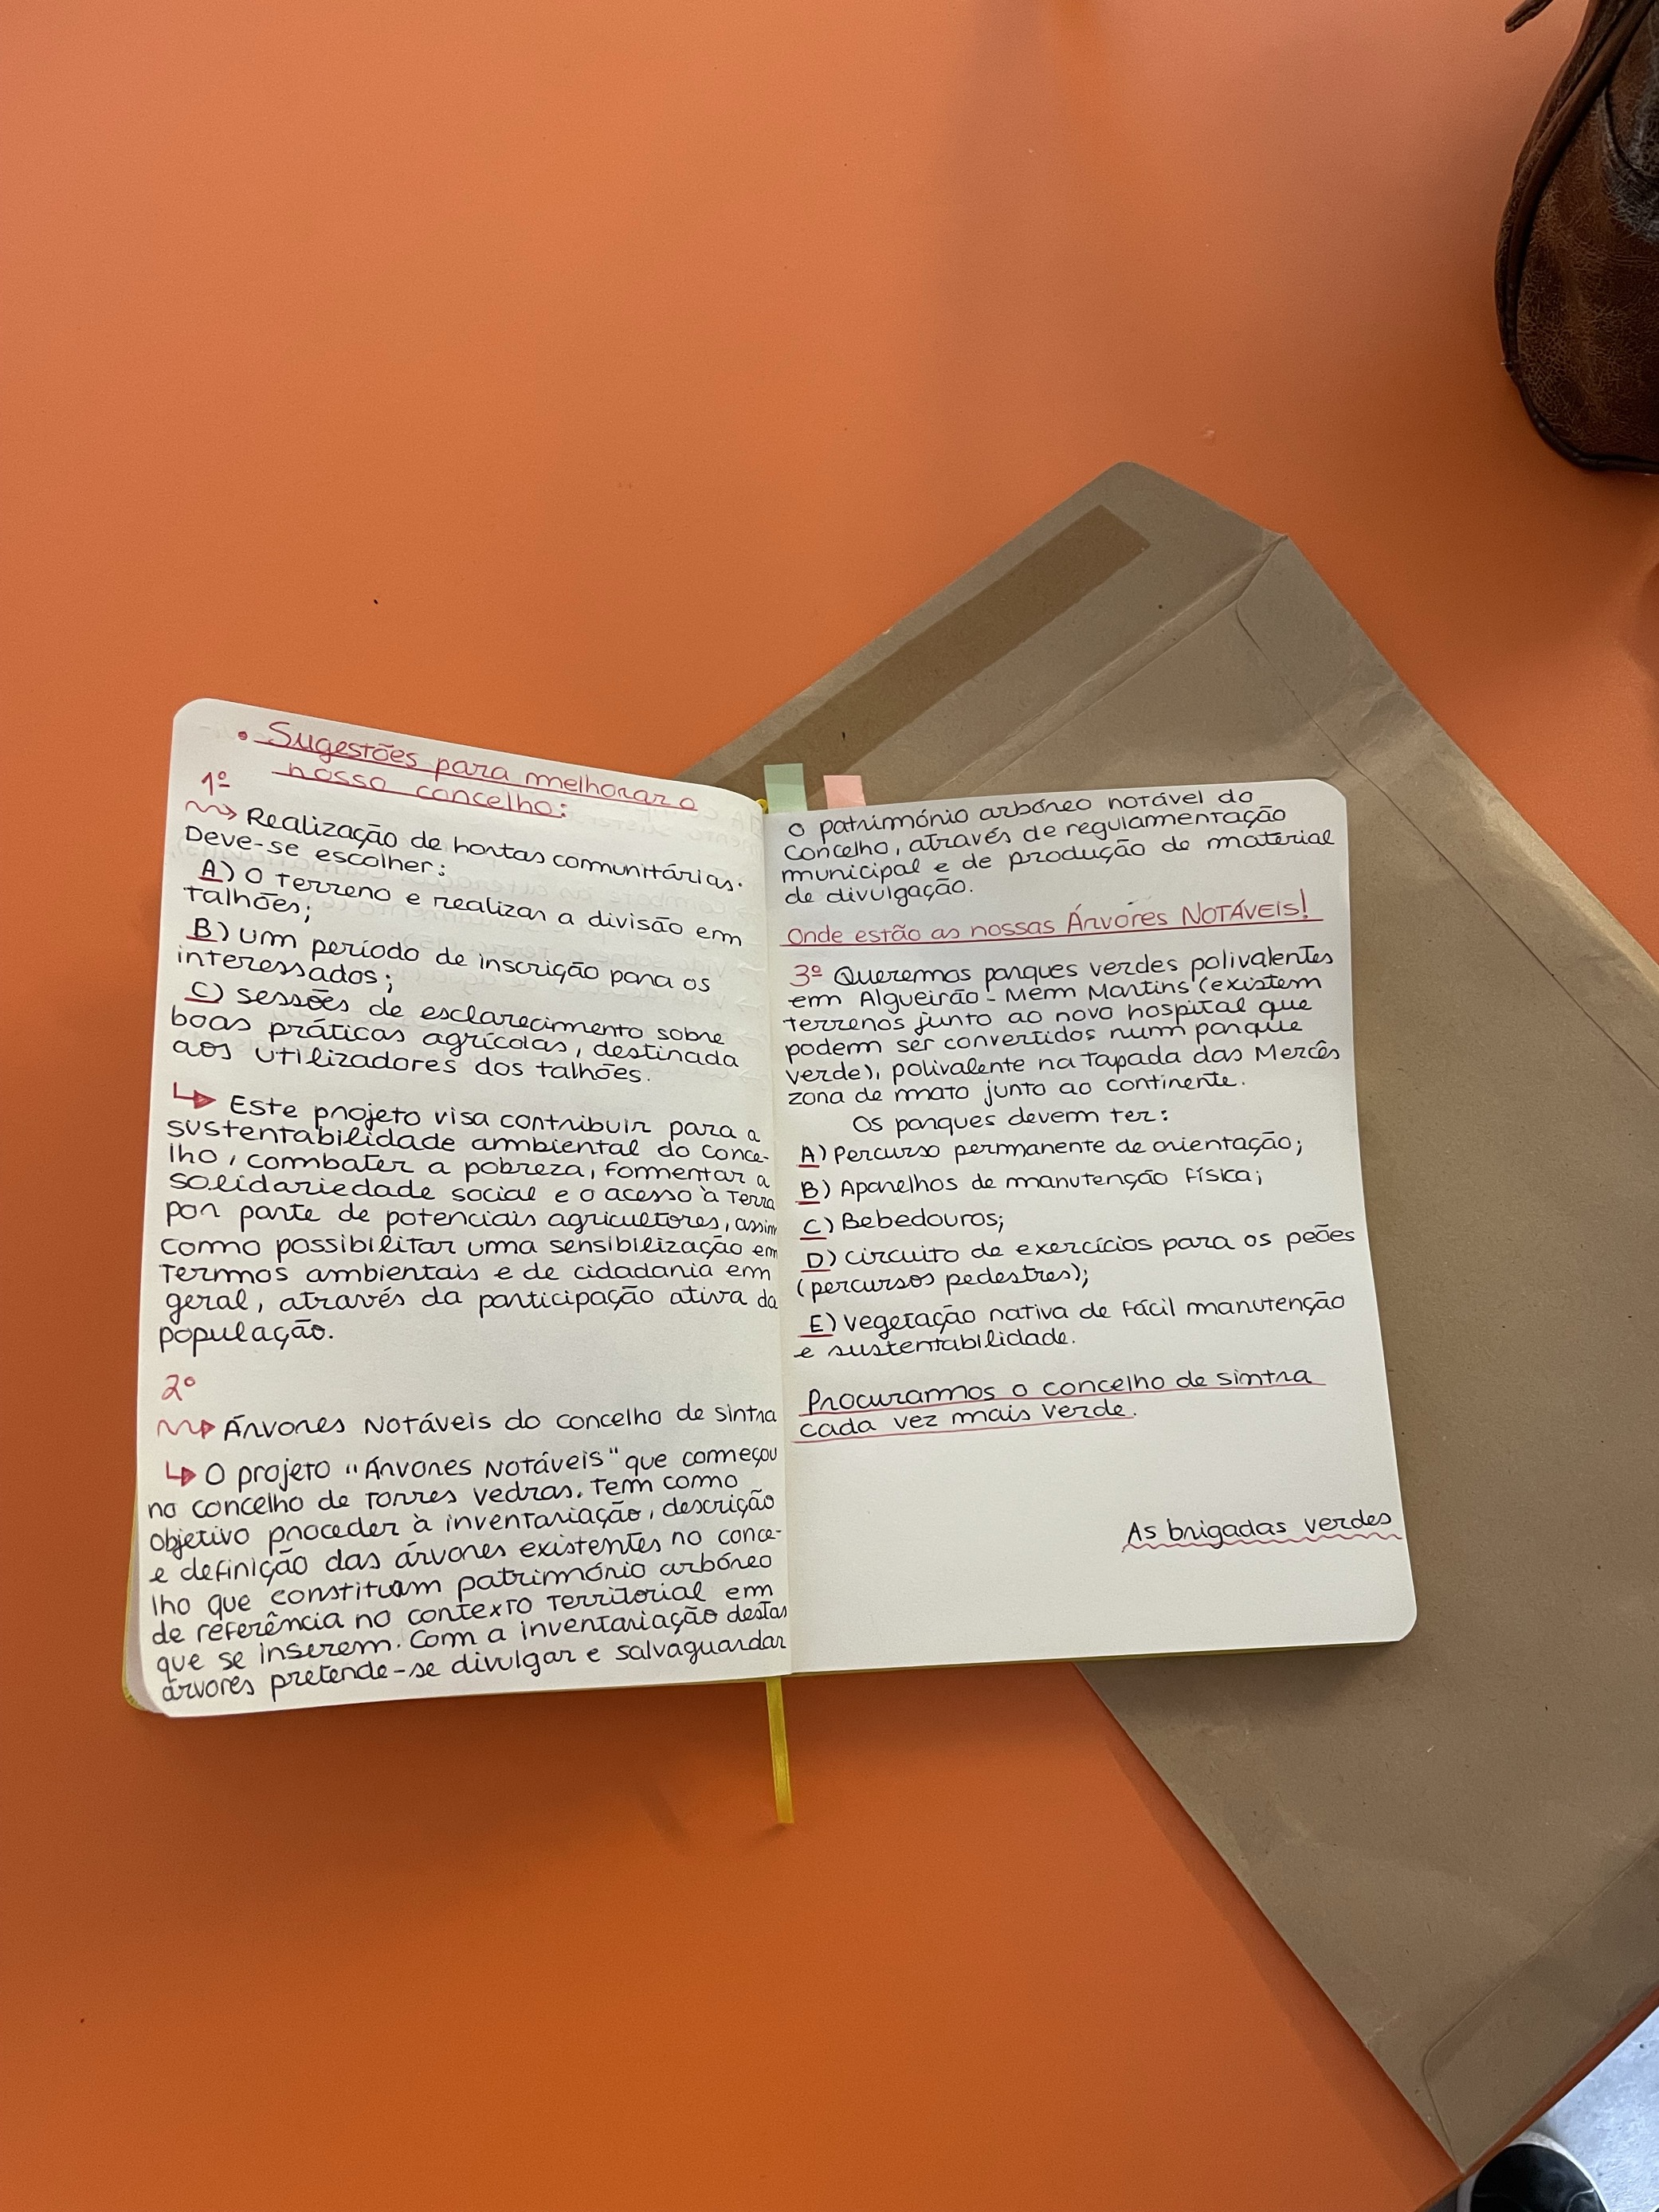 • Sugestões para melhorar o
nosso concelho:
1º
Realização de hortas comunitárias.
Deve-se escolher:
A) O terreno e realizar a divisão em
talhões;
B) um período de inscrição para os
interessados;
C) sessões de esclarecimento sobre
boas práticas agrícolas, destinada
aos utilizadores dos talhões.
↳ Este projeto visa contribuir para a
sustentabilidade ambiental do conce-
lho, combater a pobreza, fomentar a
solidariedade social e o acesso à terra
por parte de potenciais agricultores, assim
como possibilitar uma sensibilização em
termos ambientais e de cidadania em
geral, através da participação ativa da
população.
2º
Árvores Notáveis do concelho de sintra
↳ O projeto "Árvores Notáveis" que começou
no concelho de Torres Vedras. Tem como
objetivo proceder à inventariação, descrição
e definição das árvores existentes no conce-
lho que constituam património arbóreo
de referência no contexto territorial em
que se inserem. Com a inventariação destas
árvores pretende-se divulgar e salvaguardar
o património arbóreo notável do
Concelho, através de regulamentação
municipal e de produção de material
de divulgação.
Onde estão as nossas Árvores NOTÁVEIS!
3º Queremos parques verdes polivalentes
em Algueirão - Mem Martins (existem
terrenos junto ao novo hospital que
podem ser convertidos num parque
verde), polivalente na Tapada das Mercês
zona de mato junto ao continente.
Os parques devem ter:
A) Percurso permanente de orientação;
B) Aparelhos de manutenção física;
C) Bebedouros;
D) circuito de exercícios para os peões
(percursos pedestres);
E) vegetação nativa de fácil manutenção
e sustentabilidade.
Procuramos o concelho de sintra
cada vez mais verde.
As brigadas verdes